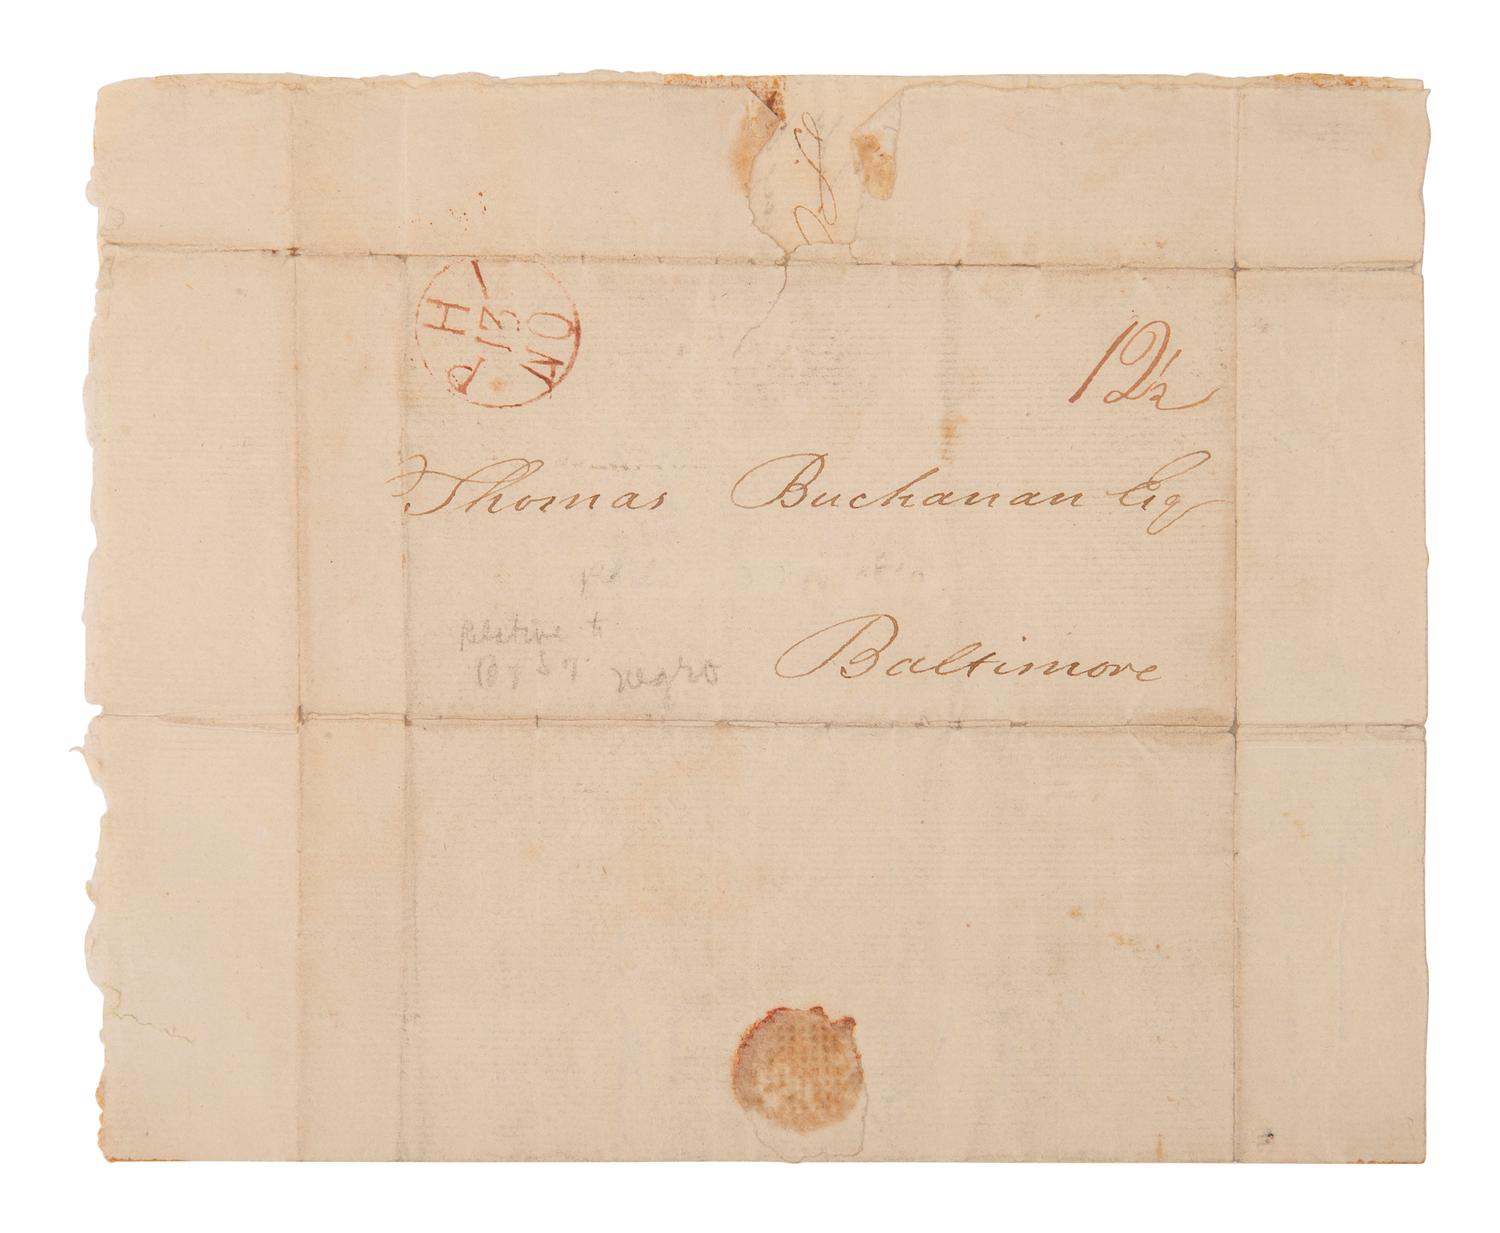 PH
13
12½
Thomas Buchanan Esq
Relative to
negro
Baltimore